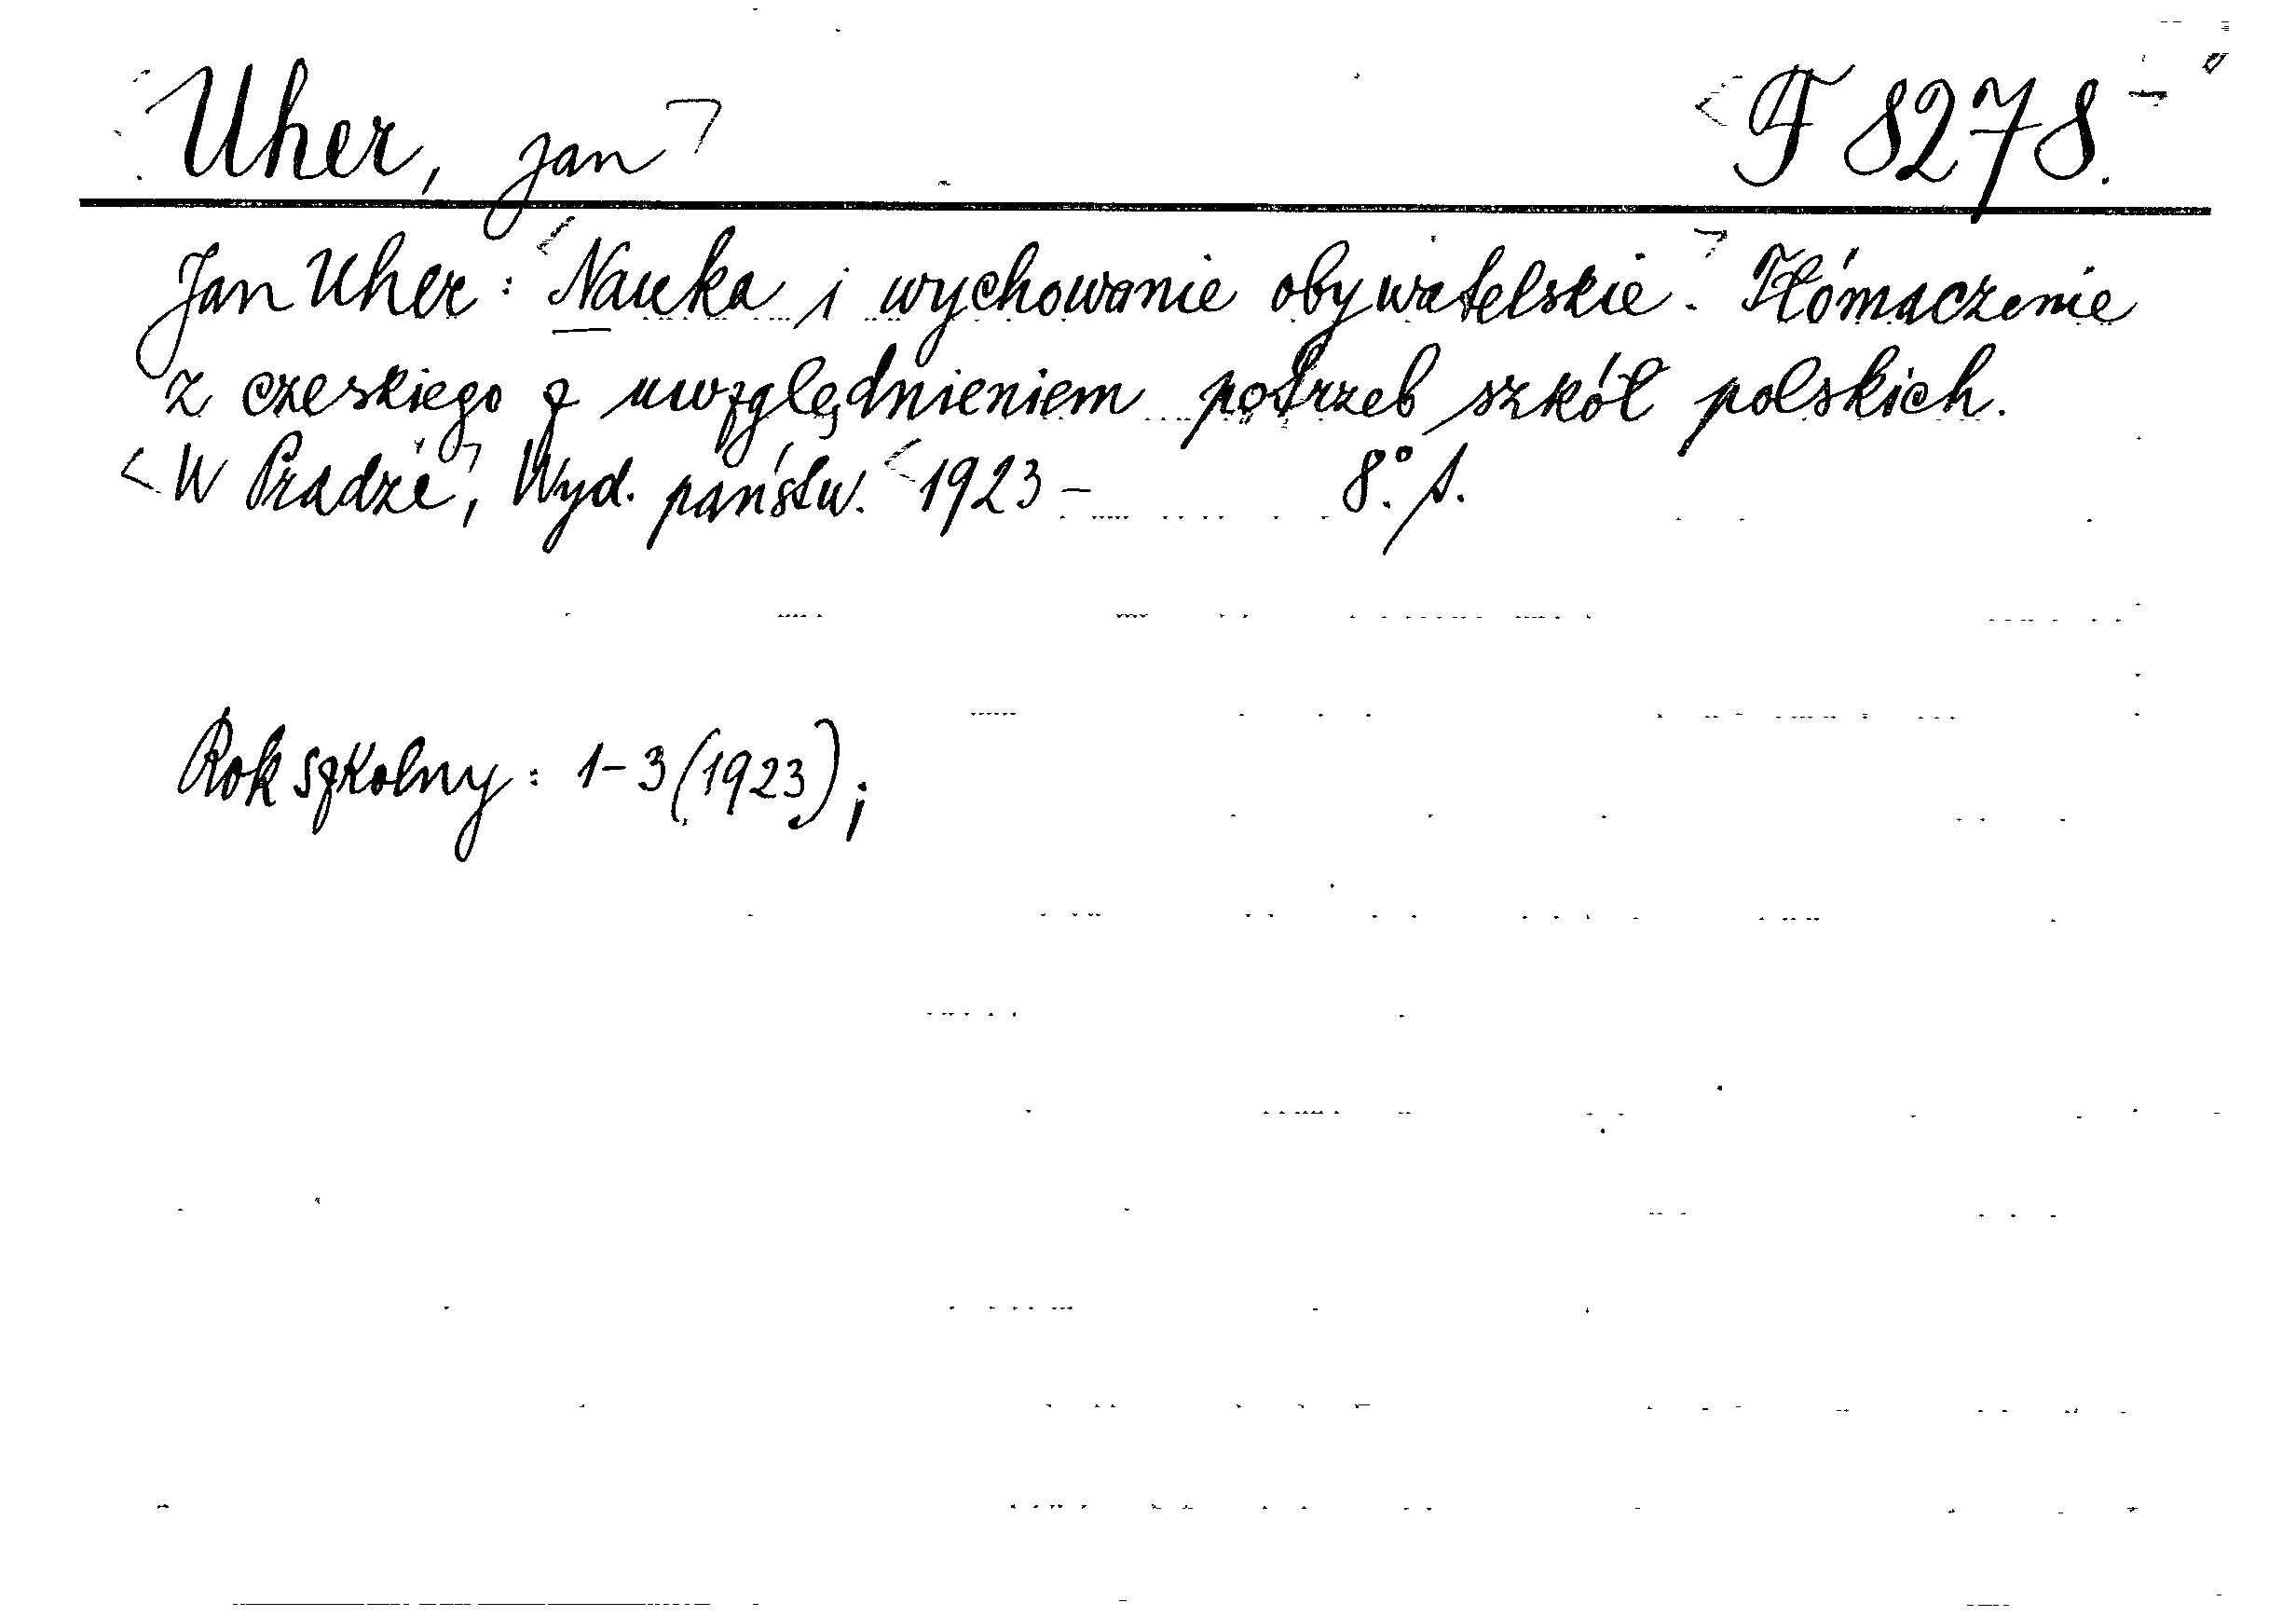 Uher, Jan
F 8278.
Jan Uher: Nauka i wychowanie obywatelskie. Tłómaczenie
z czeskiego z uwzględnieniem potrzeb szkół polskich.
W Pradze, Wyd. państw. 1923 – 8°. s.
Rok szkolny: 1-3 (1923);